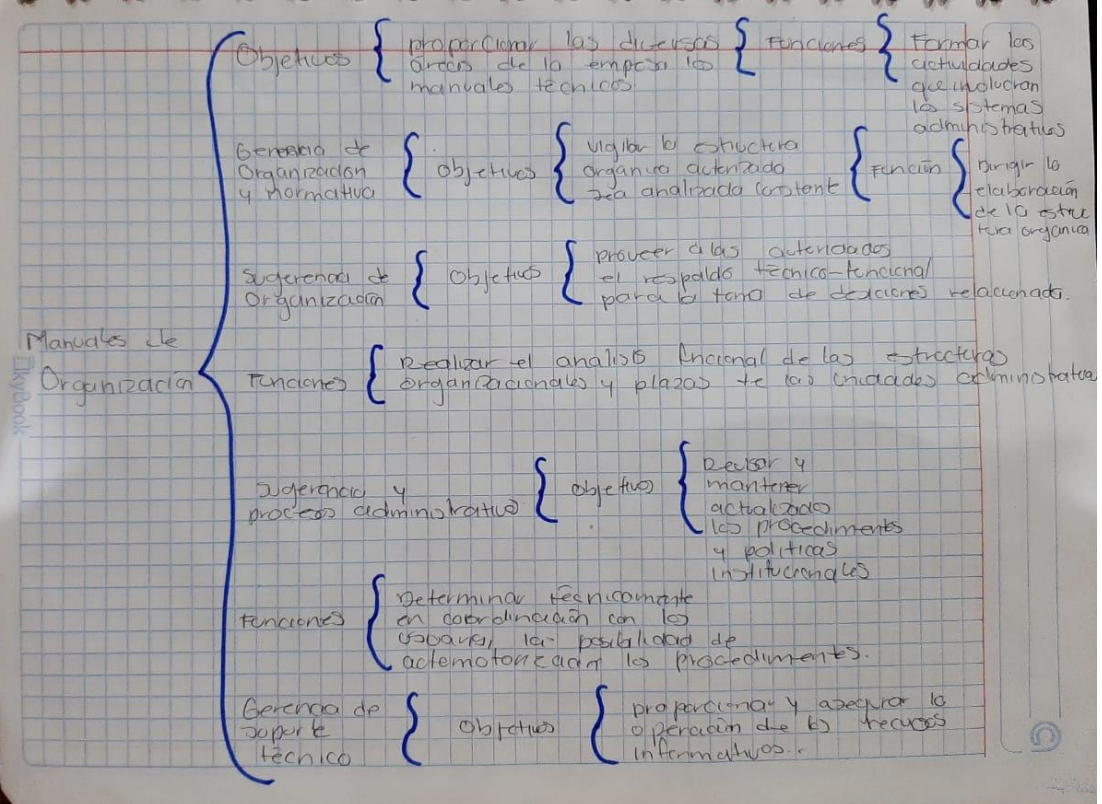 Objetivos
proporcionar las diversos
áreas de la empresa los
manuales técnicos
Funciones
Formar las
actividades
que involucran
los sistemas
administrativos
Gerencia de
Organización
y normativa
Objetivos
vigilar la estructura
organica autorizada
sea analizada constant
Función
Dirigir la
elaboración
de la estru
tura organica
Sugerencia de
Organización
Objetivo
proveer a las autoridades
el respaldo técnico-funcional
para la toma de desiciones relacionada.
Manuales de
Organización
Funciones
Realizar el analisis funcional de las estructuras
organizacionales y plazas de las unidades administrativa
Sugerencia y
proceso administrativo
objetivo
Revisar y
mantener
actualizado
los procediments
y politicas
institucionales
Funciones
Determinar técnicamente
en coordinación con los
la posibilidad de
los procedimentos.
Gerencia de
soporte
técnico
Objetivos
proporcionar y asegurar la
operación de los recursos
informativos..
SkyBook